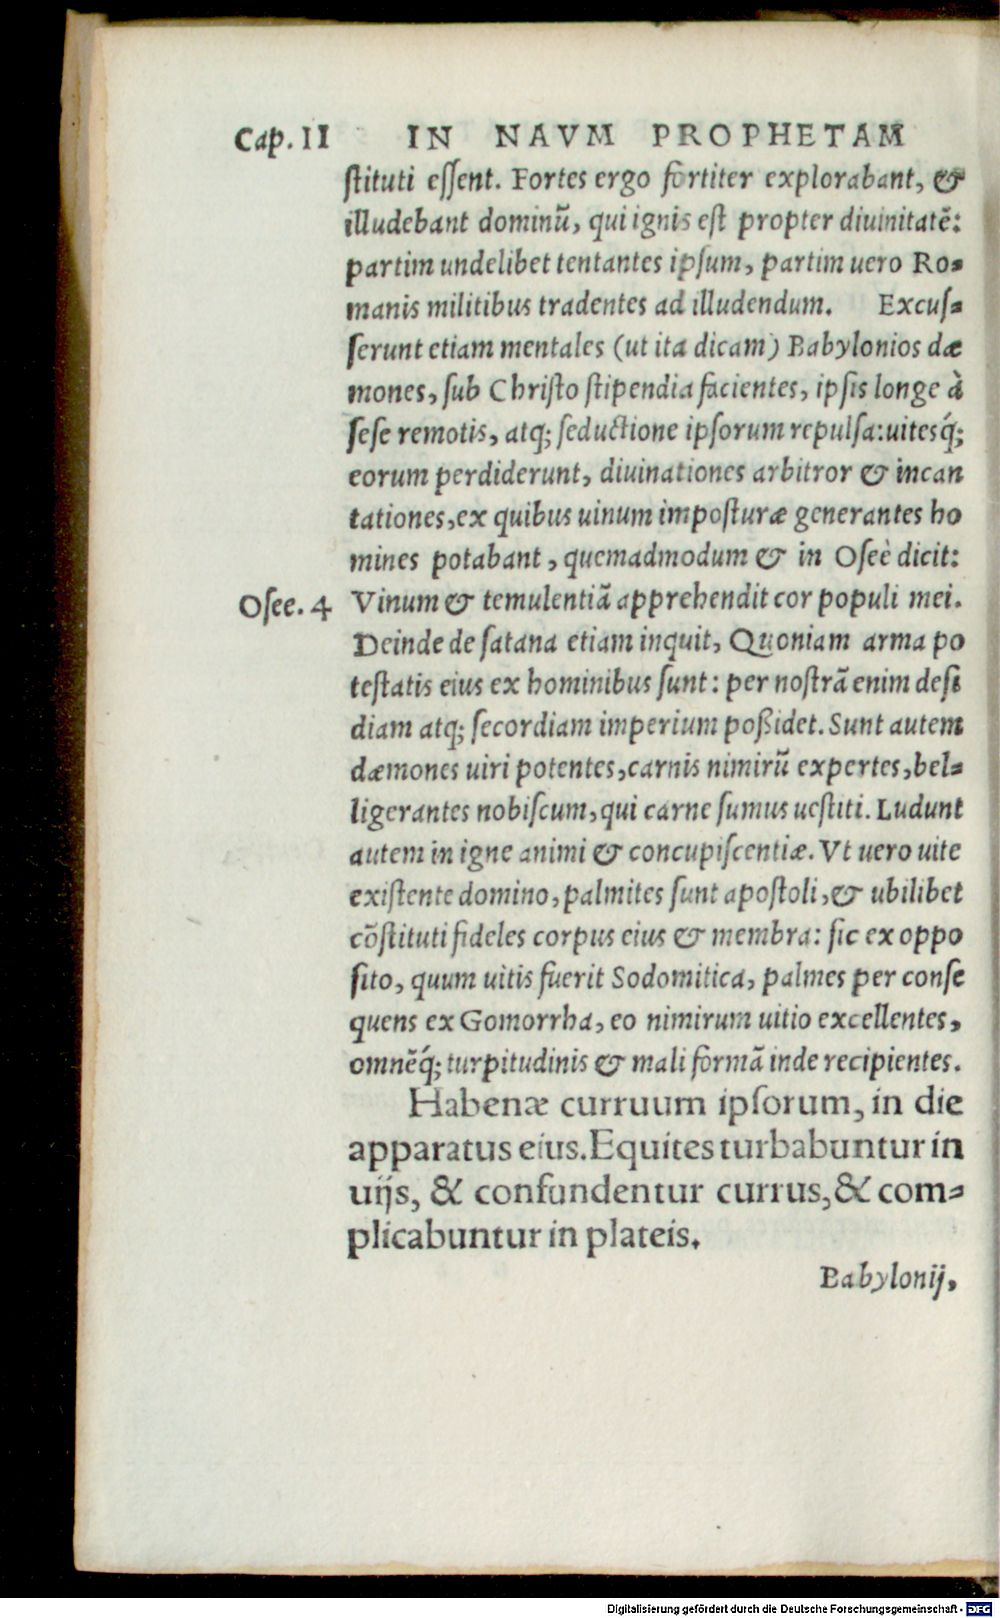 Cap. II IN NAVM PROPHETAM
ſtituti eſſent. Fortes ergo fortiter explorabant, &
illudebant dominū, qui ignis eſt propter diuinitatē:
partim undelibet tentantes ipſum, partim uero Ro-
manis militibus tradentes ad illudendum. Excuſ-
ſerunt etiam mentales (ut ita dicam) Babylonios dæ
mones, ſub Chriſto ſtipendia facientes, ipſis longe à
ſeſe remotis, atq; ſeductione ipſorum repulſa: uitesq́;
eorum perdiderunt, diuinationes arbitror & incan
tationes, ex quibus uinum impoſturæ generantes ho
mines potabant, quemadmodum & in Oſeè dicit:
Oſee. 4 Vinum & temulentiā apprehendit cor populi mei.
Deinde de ſatana etiam inquit, Quoniam arma po
teſtatis eius ex hominibus ſunt: per noſtrā enim deſi
diam atq; ſecordiam imperium poßidet. Sunt autem
dæmones uiri potentes, carnis nimirū expertes, bel-
ligerantes nobiſcum, qui carne ſumus ueſtiti. Ludunt
autem in igne animi & concupiſcentiæ. Vt uero uite
exiſtente domino, palmites ſunt apoſtoli, & ubilibet
cōſtituti fideles corpus eius & membra: ſic ex oppo
ſito, quum uitis fuerit Sodomitica, palmes per conſe
quens ex Gomorrha, eo nimirum uitio excellentes,
omnēq́; turpitudinis & mali formā inde recipientes.
Habenæ curruum ipſorum, in die
apparatus eius. Equites turbabuntur in
uijs, & confundentur currus, & com-
plicabuntur in plateis.
Babylonij,
Digitalisierung gefördert durch die Deutsche Forschungsgemeinschaft - DFG